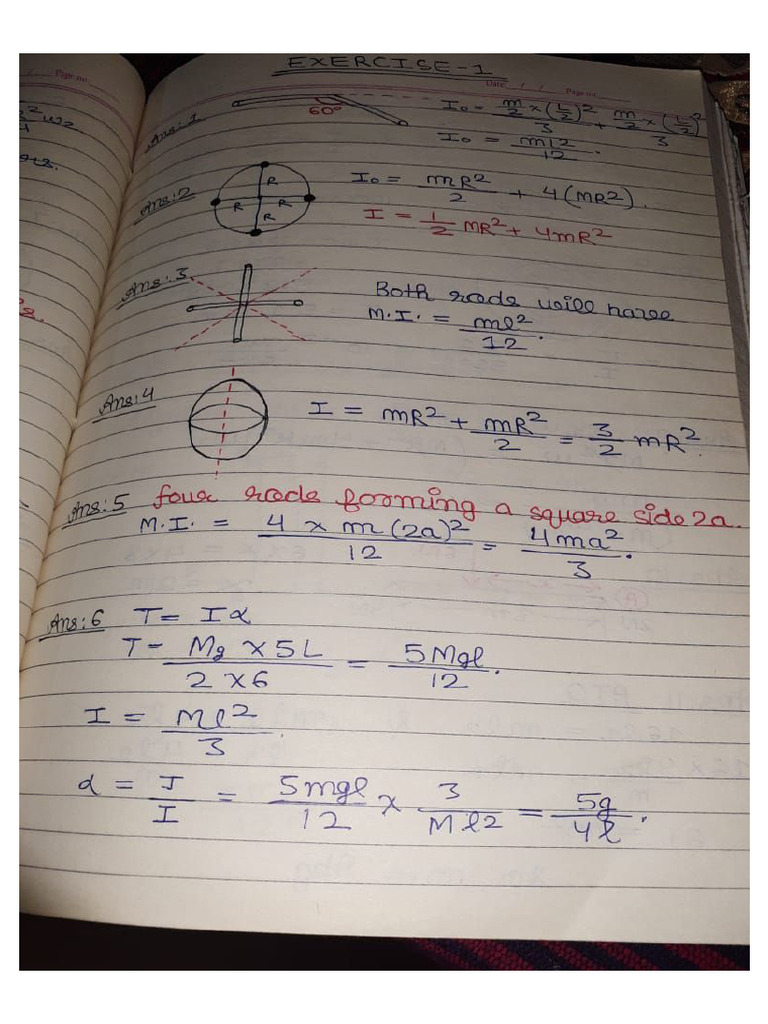 Page no.
EXERCISE-1
Date / / Page no.
Ans:1 60° I₀ = m/2 × (L/2)²/3 + m/2 × (L/2)²/3
I₀ = mL2/12.
Ans:2 R R R R I₀ = mR²/2 + 4(MR²).
I = 1/2 MR² + 4mR²
Ans:3 Both rods will have
M.I. = ml²/12.
Ans:4 I = mR² + mR²/2 = 3/2 mR².
Ans:5 four rods forming a square side 2a.
M.I. = 4 × m(2a)²/12 = 4ma²/3.
Ans:6 T = Iα
T = Mg × 5L/2 × 6 = 5Mgl/12.
I = Ml²/3.
α = J/I = 5mgl/12 × 3/Ml2 = 5g/4l.